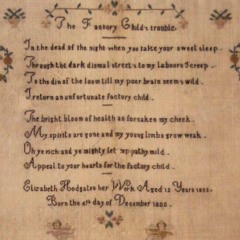 The Factory Child's trouble.
In the dead of the night when you take your sweet sleep.
Through the dark dismal streets to my Labours I creep.
To the din of the loom till my poor brain seems wild.
I return an unfortunate factory child.
The bright bloom of health as forsaken my cheek.
My spirits are gone and my young limbs grow weak.
Oh ye rich and ye mighty let sympathy mild.
Appeal to your hearts for the factory child.
Elizabeth Hodgates her Work Aged 12 Years
Born the day of December